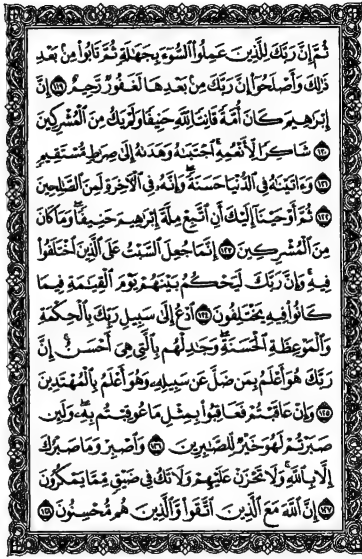 ثُمَّ إِنَّ رَبَّكَ لِلَّذِينَ عَمِلُوا۟ ٱلسُّوٓءَ بِجَهَٰلَةٍ ثُمَّ تَابُوا۟ مِنۢ بَعْدِ
ذَٰلِكَ وَأَصْلَحُوٓا۟ إِنَّ رَبَّكَ مِنۢ بَعْدِهَا لَغَفُورٌ رَّحِيمٌ ۝١١٩ إِنَّ
إِبْرَٰهِيمَ كَانَ أُمَّةً قَانِتًا لِّلَّهِ حَنِيفًا وَلَمْ يَكُ مِنَ ٱلْمُشْرِكِينَ
۝١٢٠ شَاكِرًا لِّأَنْعُمِهِ ۚ ٱجْتَبَىٰهُ وَهَدَىٰهُ إِلَىٰ صِرَٰطٍ مُّسْتَقِيمٍ
۝١٢١ وَءَاتَيْنَٰهُ فِى ٱلدُّنْيَا حَسَنَةً ۖ وَإِنَّهُۥ فِى ٱلْءَاخِرَةِ لَمِنَ ٱلصَّٰلِحِينَ
۝١٢٢ ثُمَّ أَوْحَيْنَآ إِلَيْكَ أَنِ ٱتَّبِعْ مِلَّةَ إِبْرَٰهِيمَ حَنِيفًا ۖ وَمَا كَانَ
مِنَ ٱلْمُشْرِكِينَ ۝١٢٣ إِنَّمَا جُعِلَ ٱلسَّبْتُ عَلَى ٱلَّذِينَ ٱخْتَلَفُوا۟
فِيهِ ۚ وَإِنَّ رَبَّكَ لَيَحْكُمُ بَيْنَهُمْ يَوْمَ ٱلْقِيَٰمَةِ فِيمَا
كَانُوا۟ فِيهِ يَخْتَلِفُونَ ۝١٢٤ ٱدْعُ إِلَىٰ سَبِيلِ رَبِّكَ بِٱلْحِكْمَةِ
وَٱلْمَوْعِظَةِ ٱلْحَسَنَةِ ۖ وَجَٰدِلْهُم بِٱلَّتِى هِىَ أَحْسَنُ ۚ إِنَّ
رَبَّكَ هُوَ أَعْلَمُ بِمَن ضَلَّ عَن سَبِيلِهِۦ ۖ وَهُوَ أَعْلَمُ بِٱلْمُهْتَدِينَ
۝١٢٥ وَإِنْ عَاقَبْتُمْ فَعَاقِبُوا۟ بِمِثْلِ مَا عُوقِبْتُم بِهِۦ ۖ وَلَئِن
صَبَرْتُمْ لَهُوَ خَيْرٌ لِّلصَّٰبِرِينَ ۝١٢٦ وَٱصْبِرْ وَمَا صَبْرُكَ
إِلَّا بِٱللَّهِ ۚ وَلَا تَحْزَنْ عَلَيْهِمْ وَلَا تَكُ فِى ضَيْقٍ مِّمَّا يَمْكُرُونَ
۝١٢٧ إِنَّ ٱللَّهَ مَعَ ٱلَّذِينَ ٱتَّقَوا۟ وَّٱلَّذِينَ هُم مُّحْسِنُونَ ۝١٢٨